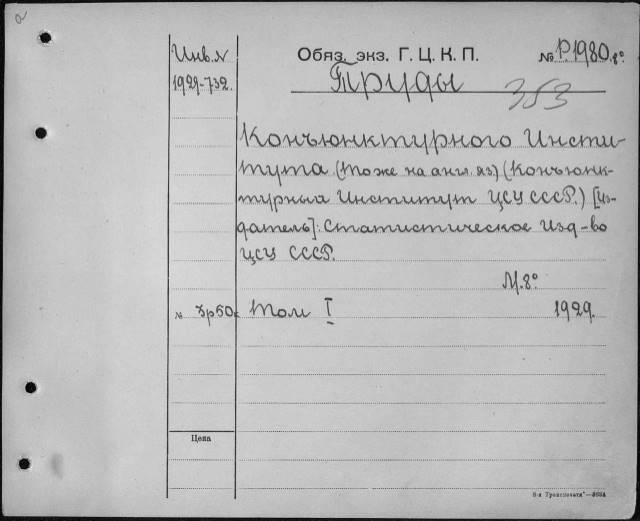 Инв.N
1929-732.
Обяз. экз. Г. Ц. К. П.
№ Р.1980.8°
Труды
353
Конъюнктурного Инсти-
тута. (Тоже на англ. яз) (Конъюнк-
турный Институт ЦСУ СССР.) [Из-
датель]: Статистическое Изд-во
ЦСУ СССР.
М. 8°
№ 3р50к Том I 1929.
Цена